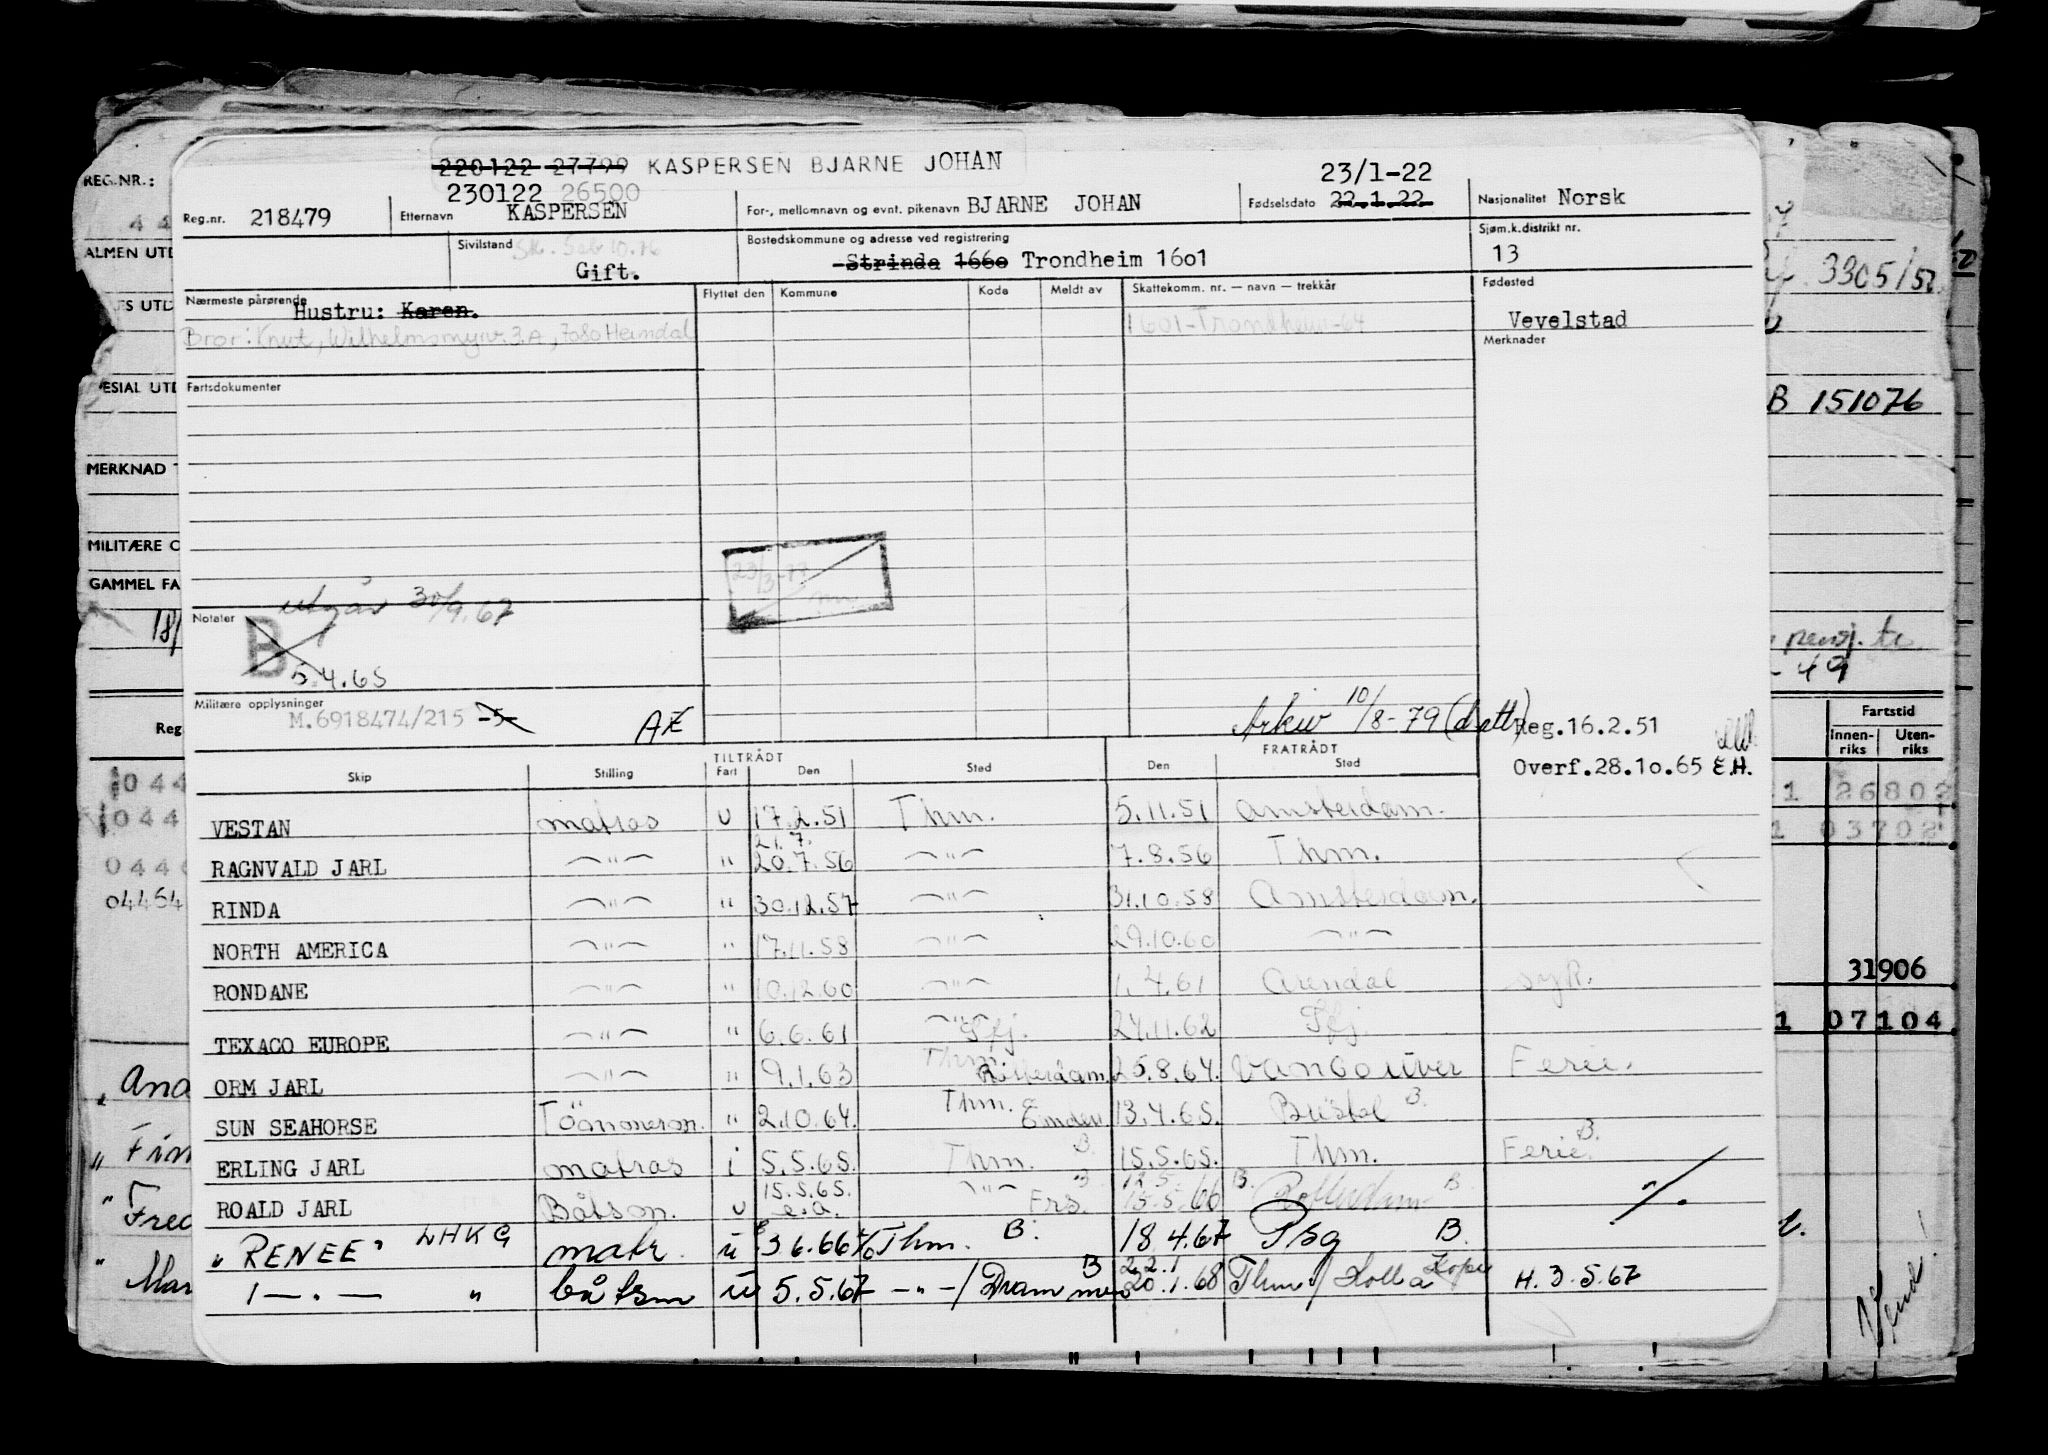 220122 27799 KASPERSEN BJARNE JOHAN
230122 26500
23/1-22
Reg.nr. 218479 Etternavn KASPERSEN For-, mellomnavn og evnt. pikenavn BJARNE JOHAN Fødselsdato 22.1.22. Nasjonalitet Norsk
Sivilstand Gift.
Bostedskommune og adresse ved registrering
Strinda 1660 Trondheim 1601
Sjøm.k.distrikt nr.
13
Nærmeste pårørende
Hustru: Karen.
Bror: Knut, Wilhelmsmyrv. 3.A, 7080 Heimdal
Flyttet den Kommune Kode Meldt av Skattekomm. nr. — navn — trekkår
1601-Trondheim-64
Fødested
Vevelstad
Merknader
Fartsdokumenter
23/3-77
utgår 30/9.67
Notater
B
5.4.65
Militære opplysninger
M.6918474/215 -5-
AE
Arkiv 10/8-79 (datt)
Reg.16.2.51
Overf.28.10.65 E.H.
TILTRÅDT FRATRÅDT
Skip Stilling Fart Den Sted Den Sted
VESTAN matros u 17.2.51 Thm. 5.11.51 Amsterdam.
21.7.
RAGNVALD JARL —"— " 20.7.56 —"— 7.8.56 Thm.
RINDA —"— " 30.12.57 —"— 31.10.58 Amsterdam.
NORTH AMERICA —"— " 17.11.58 —"— 29.10.60 —"—
RONDANE —"— " 10.12.60 —"— 1.4.61 Arendal syk.
TEXACO EUROPE —"— " 6.6.61 —"— Sfj. 24.11.62 Sfj.
ORM JARL —"— " 9.1.63 Thm. Rotterdam 25.8.64. Vancouver Ferie.
SUN SEAHORSE Tömmerm. " 2.10.64. Thm. Emden 13.4.65. Bristol B.
ERLING JARL matros i 5.5.65. Thm. B. 15.5.65. Thm. Ferie B.
15.5.65. 12.5.
ROALD JARL Båtsm. u e.a. —"— Frs. B 13.5.66 B. Rotterdam B. "/.
"RENEE" LHKG matr. u 3 6.66 Thm. B. 18.4.67 Psg B.
22.1
1—"— " båtsm u 5.5.67 —"—/Drammen B 20.1.68 Thm/Kolla Koper H. 3.5.67
REG.NR.:
44
ALMEN UTD
ESIAL UTD
MERKNAD
MILITÆRE O
GAMMEL FA
18/
Reg
044
044
044
04454
" And
" Fin
" Fred
" Mar
3305/52
B 151076
pensj.
- 49
Fartstid
Innen-riks Uten-riks
1 26802
1 03702
31906
1 07104
Vend!